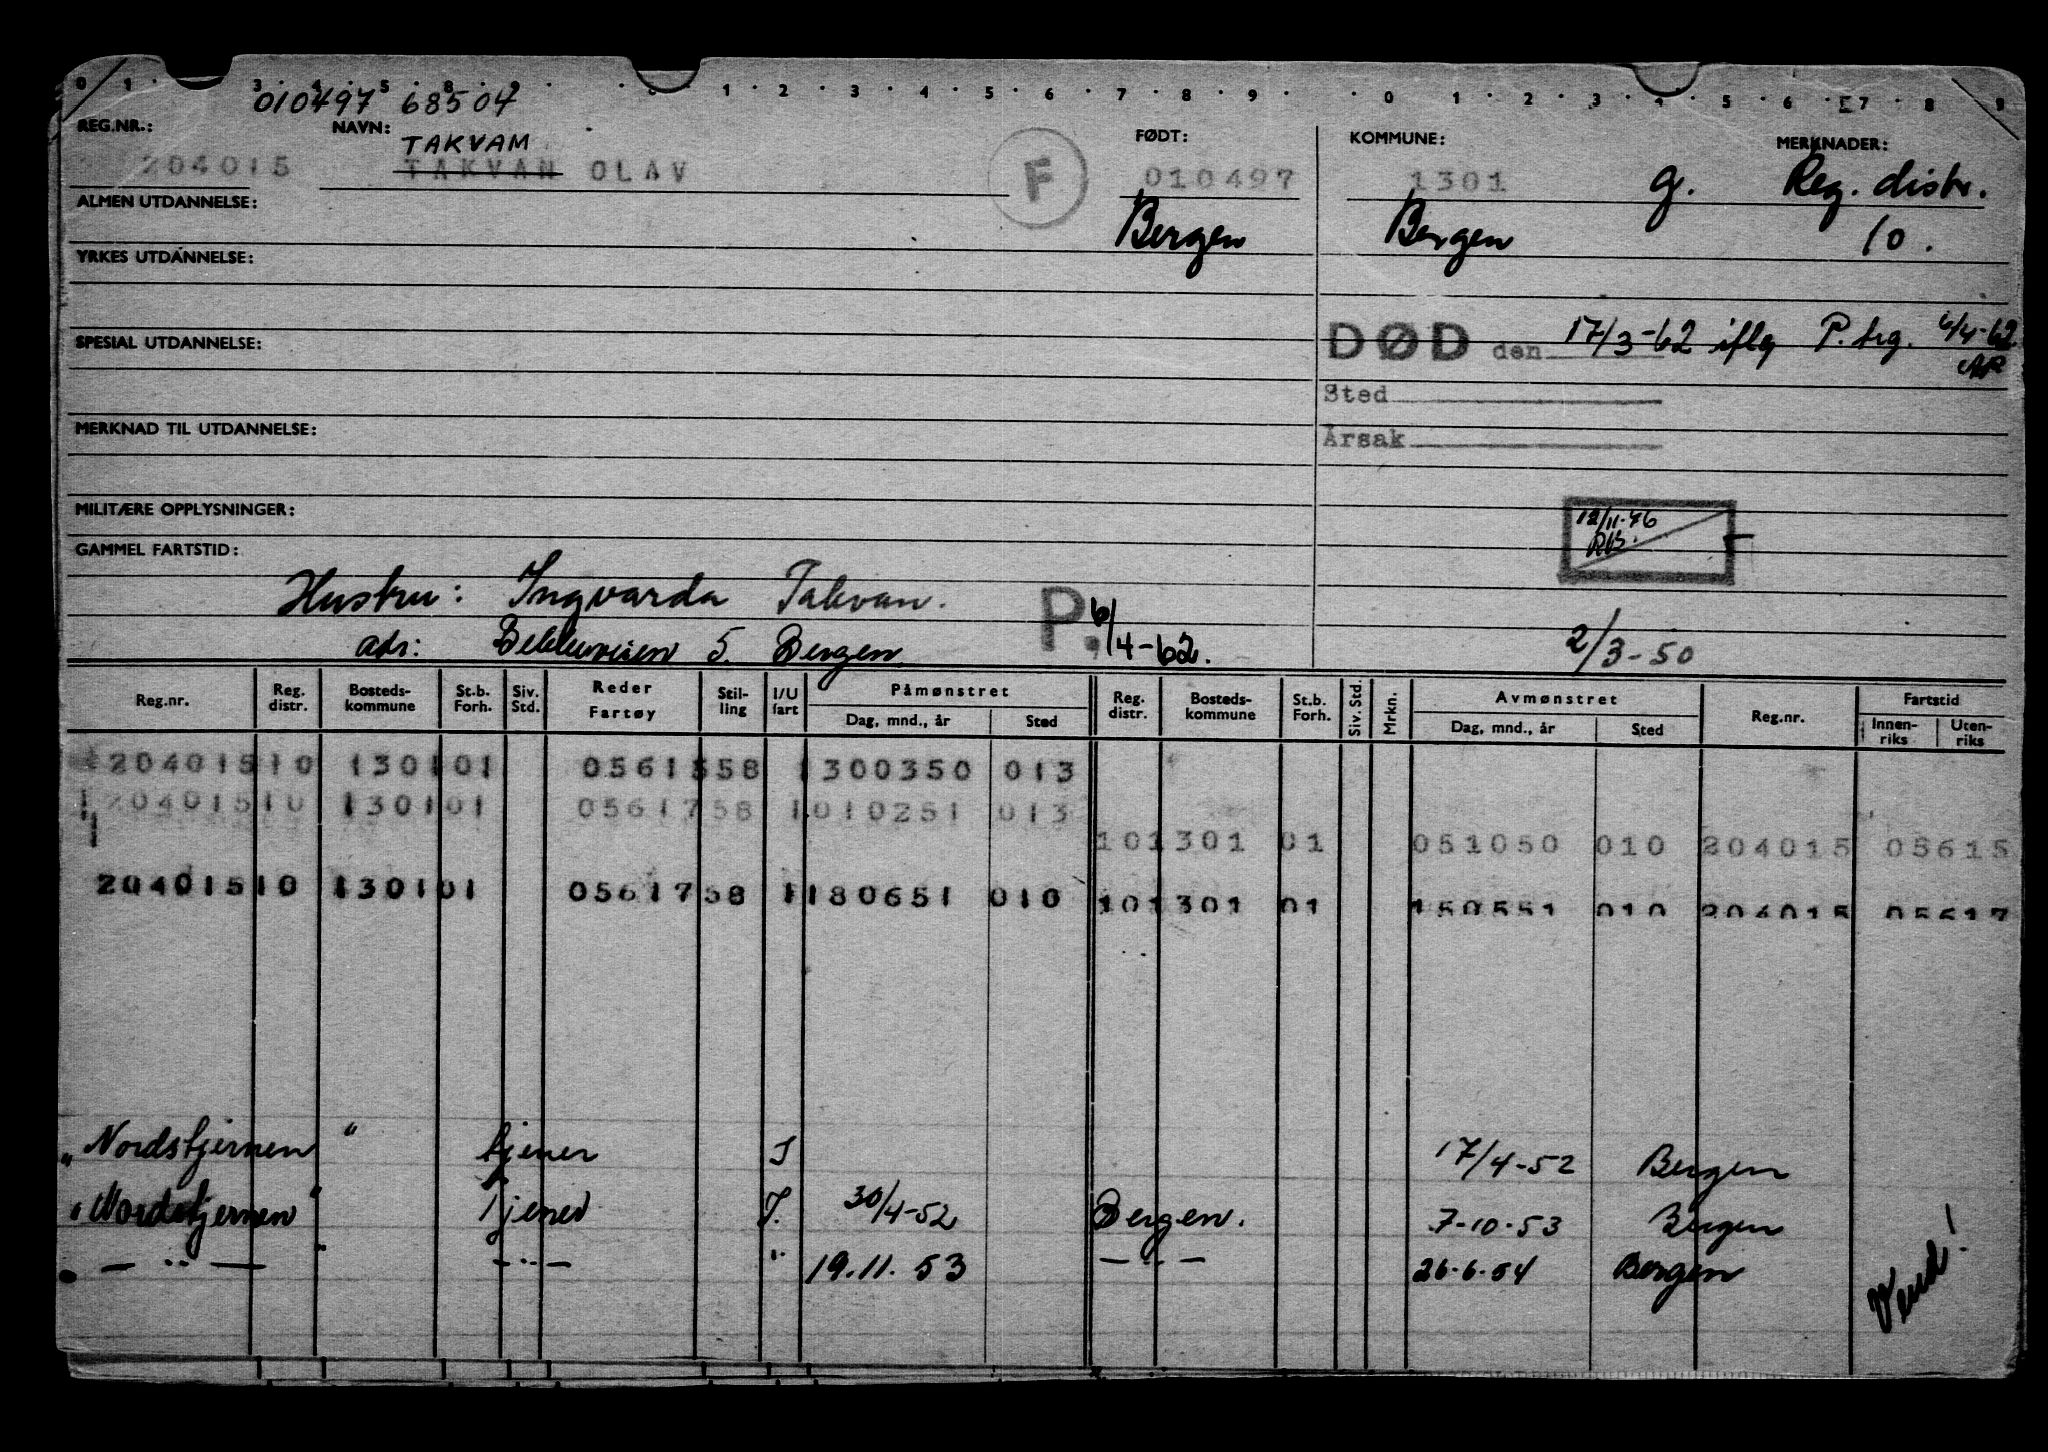 0 1 3 4 5 8 9 1 2 3 4 5 6 7 8 9 0 1 2 3 4 5 6 7 8 9
010497 68504
REG.NR.: NAVN: FØDT: KOMMUNE: MERKNADER:
TAKVAM
204015 TAKVAN OLAV F 010497 1301 g. Reg. distr.
ALMEN UTDANNELSE: Bergen Bergen 10.
YRKES UTDANNELSE:
SPESIAL UTDANNELSE: DØD den 17/3-62 iflg P.trg. 6/4-62
Sted
MERKNAD TIL UTDANNELSE: Årsak
MILITÆRE OPPLYSNINGER: 12/11-46
GAMMEL FARTSTID:
Hustru: Ingvarda Takvan. P. 6/4-62.
adr: 5. Bergen. 2/3-50
Reg.nr. Reg. distr. Bosteds-kommune St.b. Forh. Siv. Std. Reder Fartøy Stil-ling I/U fart Påmønstret Dag, mnd., år Sted Reg. distr. Bosteds-kommune St.b. Forh. Siv. Std. Mrkn. Avmønstret Dag, mnd., år Sted Reg.nr. Fartstid Innen-riks Uten-riks
204015 10 1301 01 05615 58 1 300350 013
204015 10 1301 01 05617 58 1 010251 013
10 1301 01 051050 010 204015 05615
204015 10 1301 01 05617 58 1 180651 010
10 1301 01 150551 010 204015 05617
"Nordstjernen" tjener I 17/4-52 Bergen
"Nordstjernen" Tjener I. 30/4-52 Bergen. 7-10-53 Bergen
— " — — " — " 19.11.53 — " — 26-6-54 Bergen
Vend!